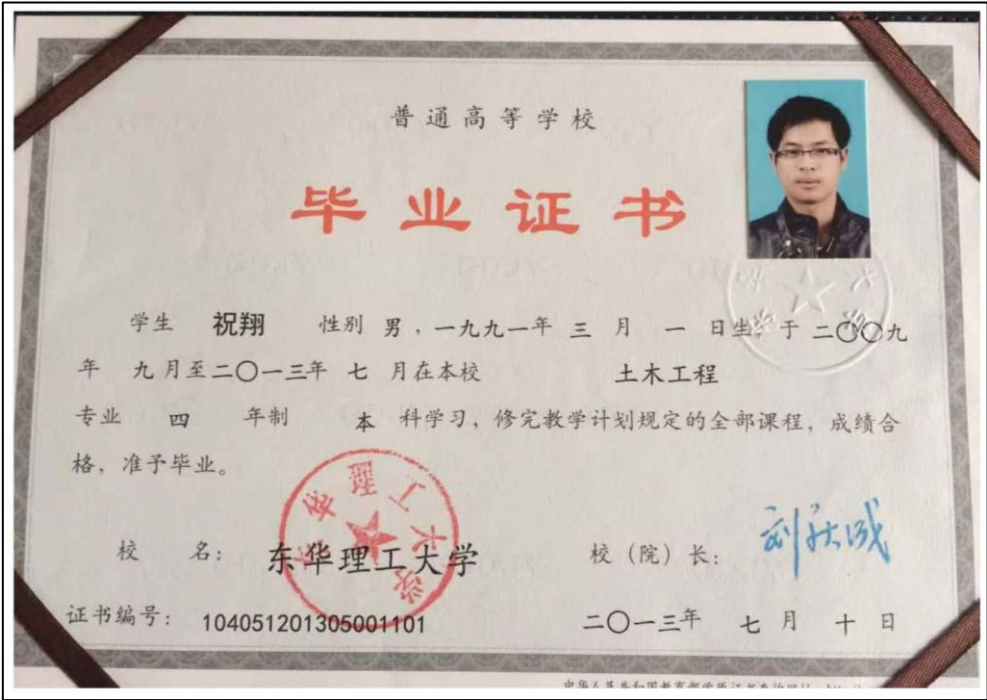 普通高等学校
毕业证书
学生 祝翔 性别 男，一九九一年 三 月 一 日生，于 二〇〇九
年 九月至二〇一三年 七 月在本校 土木工程
专业 四 年制 本 科学习，修完教学计划规定的全部课程，成绩合
格，准予毕业。
东华理工大学
校 名： 东华理工大学 校（院）长： 刘庆成
证书编号： 104051201305001101 二〇一三年 七 月 十 日